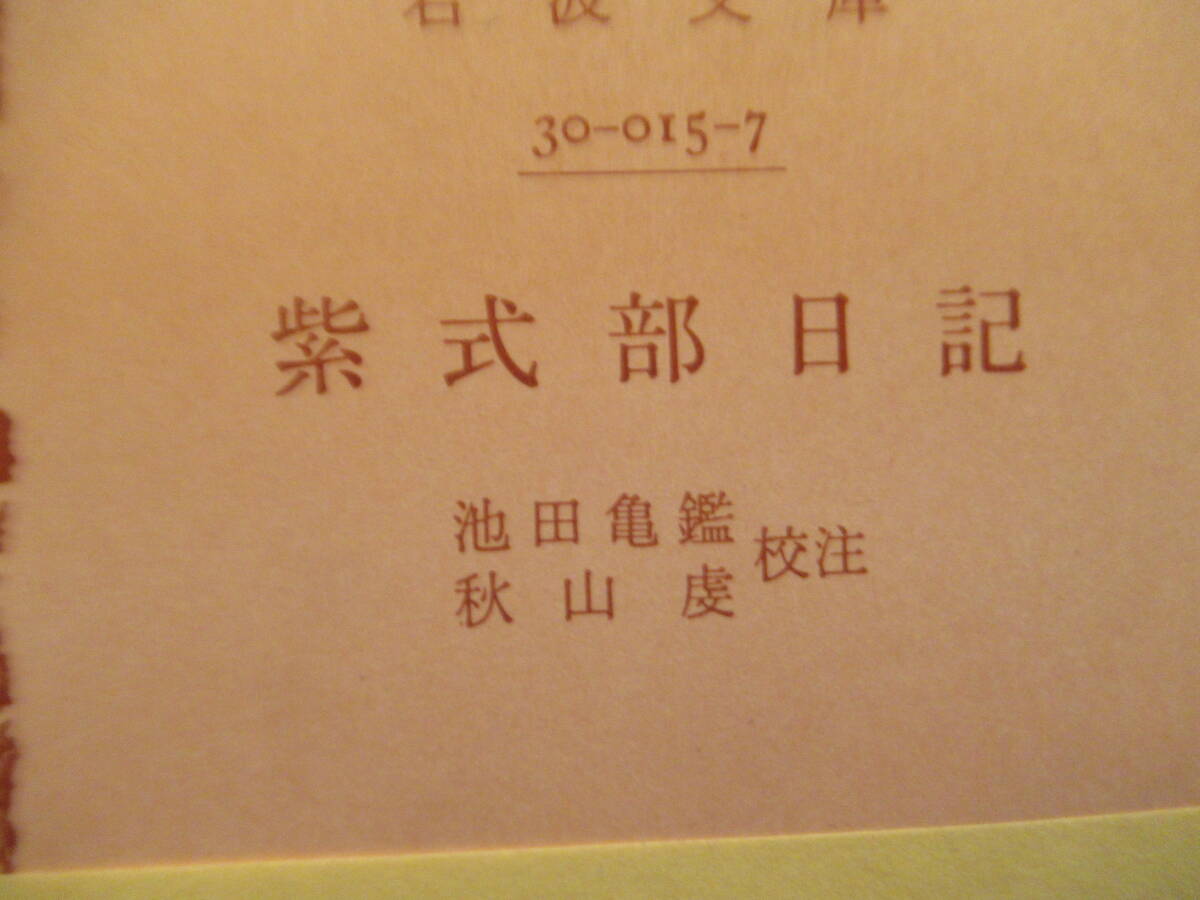 岩波文庫
30-015-7
紫式部日記
池田亀鑑
秋山虔
校注